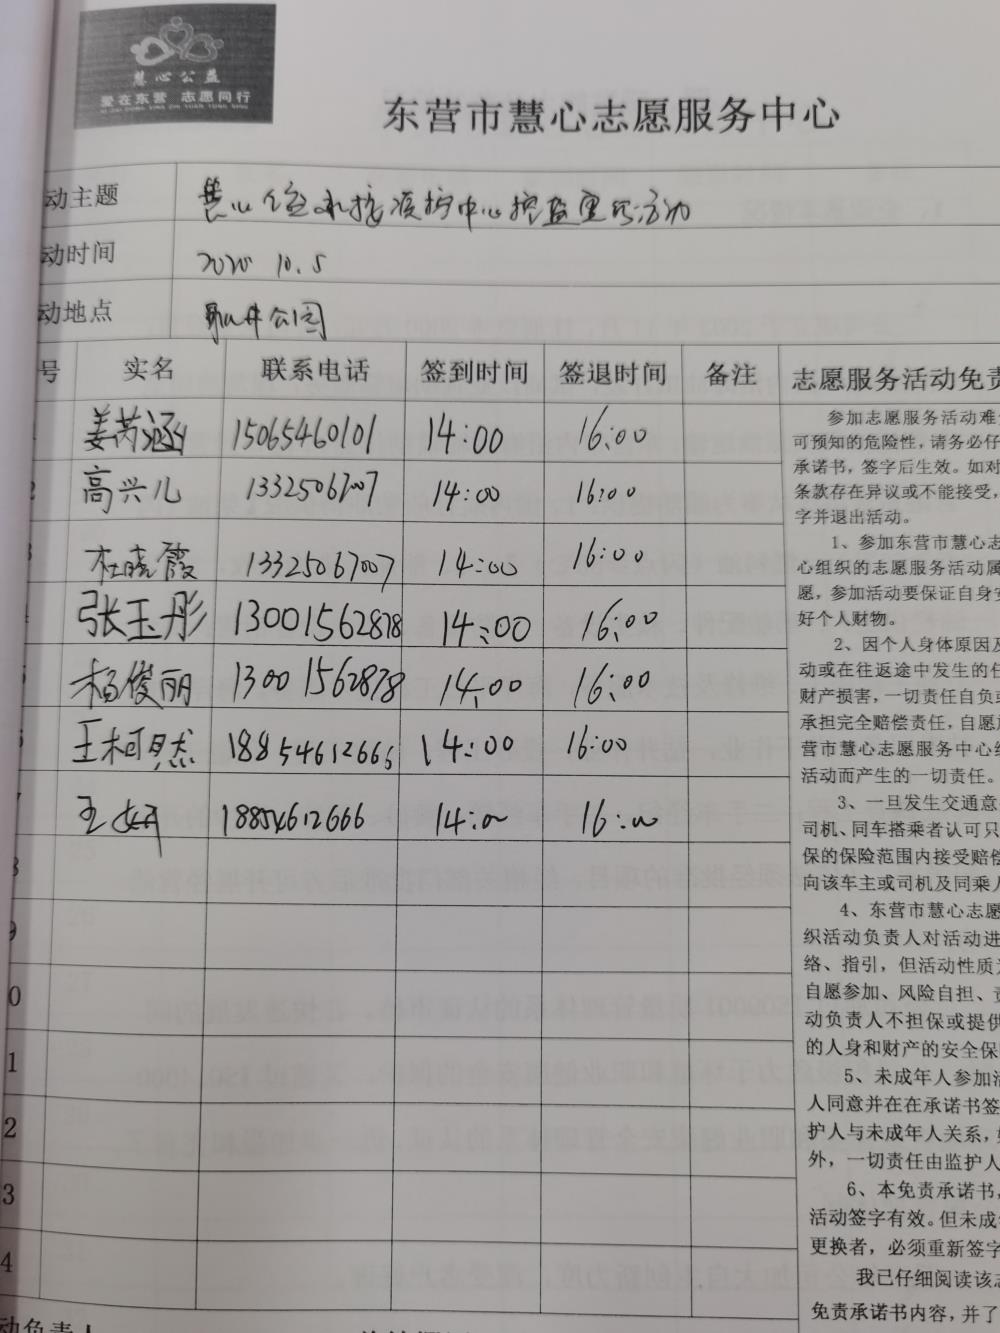 慧心公益
爱在东营 志愿同行
东营市慧心志愿服务中心
动主题
慧心 中心 活动
动时间 2020 10.5
动地点 公园
号 实名 联系电话 签到时间 签退时间 备注 志愿服务活动免责
姜芮涵 15065460101 14:00 16:00
2 高兴儿 13325067007 14:00 16:00
3 杜晓霞 13325067007 14:00 16:00
张玉彤 13001562878 14:00 16:00
5 杨俊丽 13001562878 14:00 16:00
6 王柯然 18854612666 14:00 16:00
7 王妍 18854612666 14:00 16:00
8
9
0
1
2
3
4
参加志愿服务活动难
可预知的危险性,请务必仔
承诺书,签字后生效。如对
条款存在异议或不能接受,
字并退出活动。
1、参加东营市慧心志
心组织的志愿服务活动属
愿,参加活动要保证自身安
好个人财物。
2、因个人身体原因及
动或在往返途中发生的任
财产损害,一切责任自负或
承担完全赔偿责任,自愿放
营市慧心志愿服务中心组
活动而产生的一切责任。
3、一旦发生交通意
司机、同车搭乘者认可只
保的保险范围内接受赔偿
向该车主或司机及同乘人
4、东营市慧心志愿
织活动负责人对活动进
络、指引,但活动性质为
自愿参加、风险自担、责
动负责人不担保或提供
的人身和财产的安全保
5、未成年人参加活
人同意并在在承诺书签
护人与未成年人关系,如
外,一切责任由监护人
6、本免责承诺书,
活动签字有效。但未成年
更换者,必须重新签字
我已仔细阅读该志
免责承诺书内容,并了
动负责人